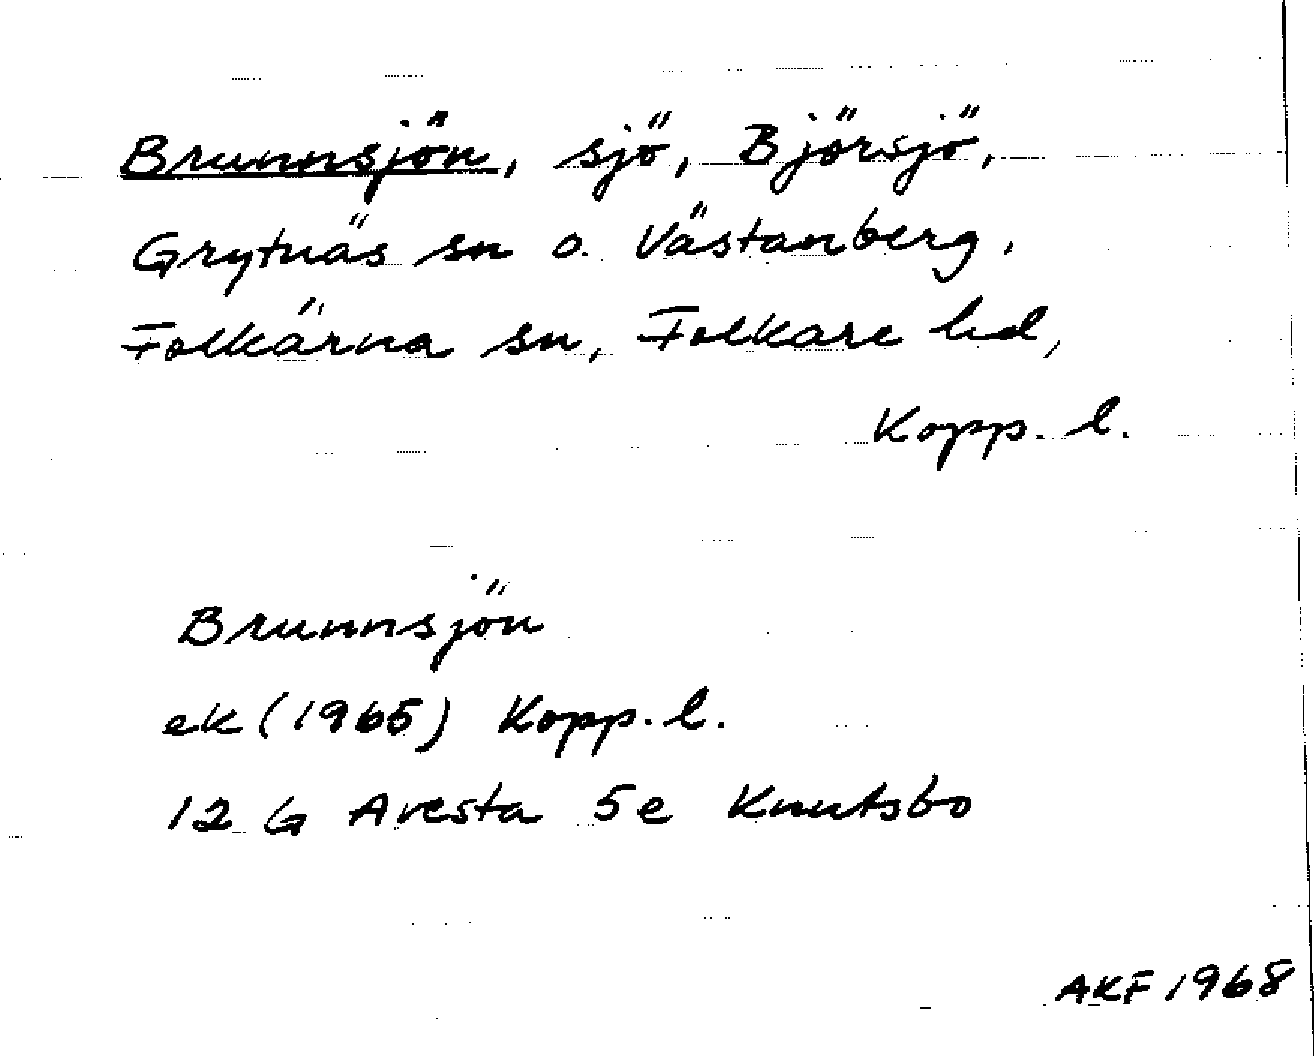 Brunnsjön, sjö, Björsjö,
Grytnäs sn o. Västanberg,
Folkärna sn, Folkare hd,
Kopp. l.
Brunnsjön
ek (1965) Kopp. l.
12 G Avesta 5e Knutsbo
AKF 1968